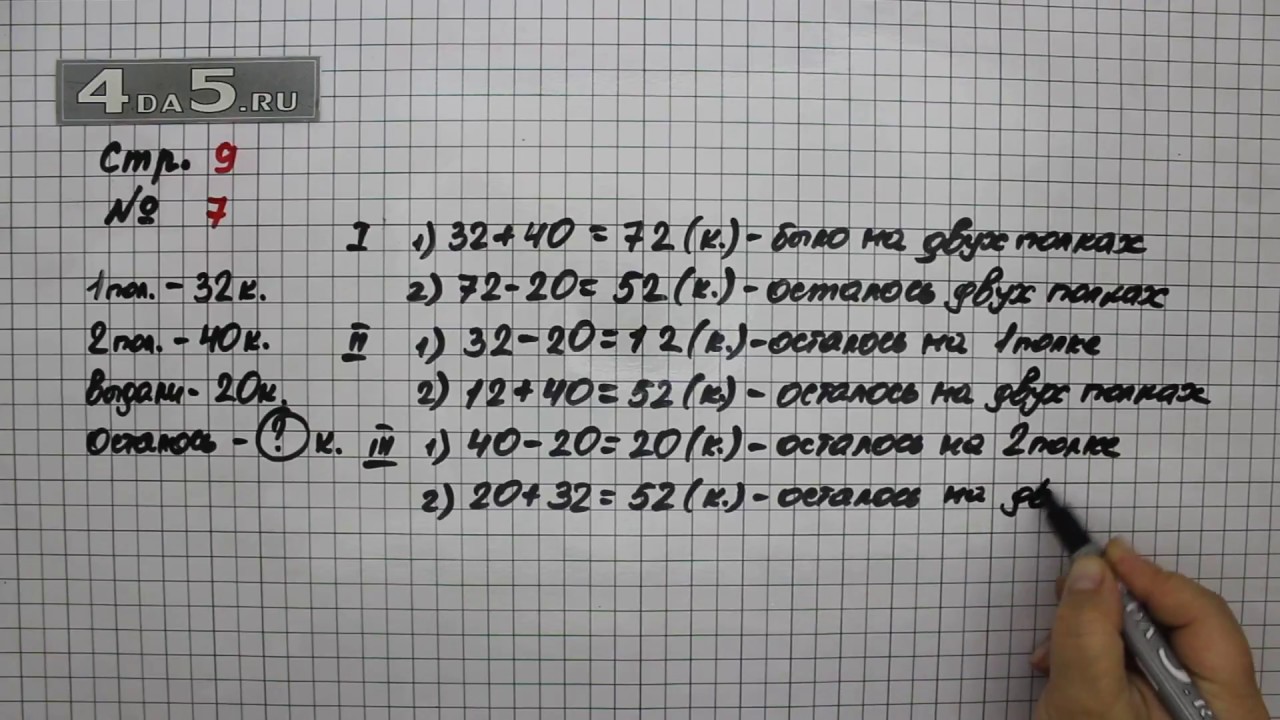 4DA5.RU
Стр. 9
№ 7
I 1) 32+40=72(к.)-было на двух полках
1 пол. - 32 к.
2) 72-20=52(к.)-осталось двух полках
2 пол. - 40 к.
II 1) 32-20=12(к.)-осталось на 1 полке
Выдали - 20 к.
2) 12+40=52(к.)-осталось на двух полках
Осталось - ? к.
III 1) 40-20=20(к.)-осталось на 2 полке
2) 20+32=52(к.)-осталось на дв